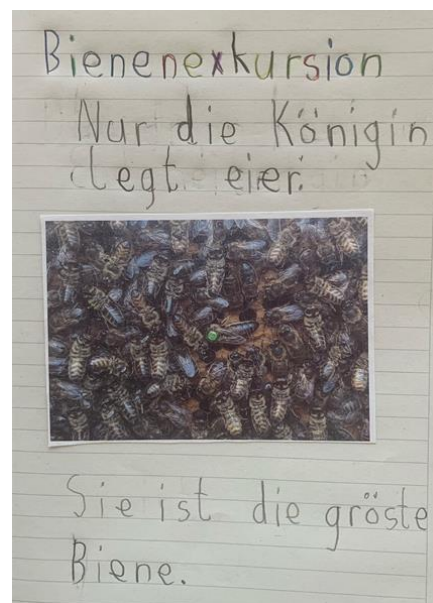 Bienenexkursion
Nur die Königin
legt eier.
Sie ist die gröste
Biene.